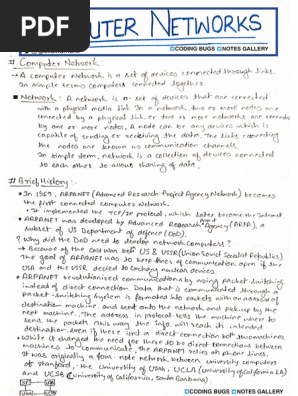 PDF
COMPUTER NETWORKS
CODING BUGS NOTES GALLERY
# Computer Network
→ A computer network is a set of devices connected through links.
In simple terms computers connected together
■ Network: A network is a set of devices that are connected
with a physical media link. In a network, two or more nodes are
connected by a physical link or two or more networks are connected
by one or more nodes. A node can be any devices which is
capable of sending or receiving the data. The links connecting
the nodes are known as communication channels.
In simple term, network is a collection of devices connected
to each other to allow sharing of data.
# Brief History:-
• In 1969, ARPANET (Advanced Research Project Agency Network) becomes
the first connected computer network.
• It implemented the TCP/IP protocol, which later became the Internet.
• ARPANET was developed by Advanced Research Project Agency (ARPA), a
subset of US Department of defence (DoD).
? Why did the DoD need to develop network computers?
→ Because of the cold war betw US & USSR (Union Soviet Socialist Republics)
The goal of ARPANET was to keep lines of communication open if the
USA and the USSR decided to exchange nuclear devices.
• ARPANET revolutionized communications by using packet switching
instead of direct connection. Data that is communicated through a
Packet-switching system is formatted into packets with an address of
destination machine and sent onto the network and picked up by the
next machine. The address in protocol tells the machine where to
send the packets. This way the info will reach its intended
destination even if there isn't a direct connection both two machines
• While it changed the need for there to be direct connections between
machines to communicate, the ARPANET relies on phone lines.
It was originally a four-node network between university computers
of Stanford, the University of Utah, UCLA (University of California LA)
and UCSB (University of California, Santa Barbara)
CODING BUGS NOTES GALLERY